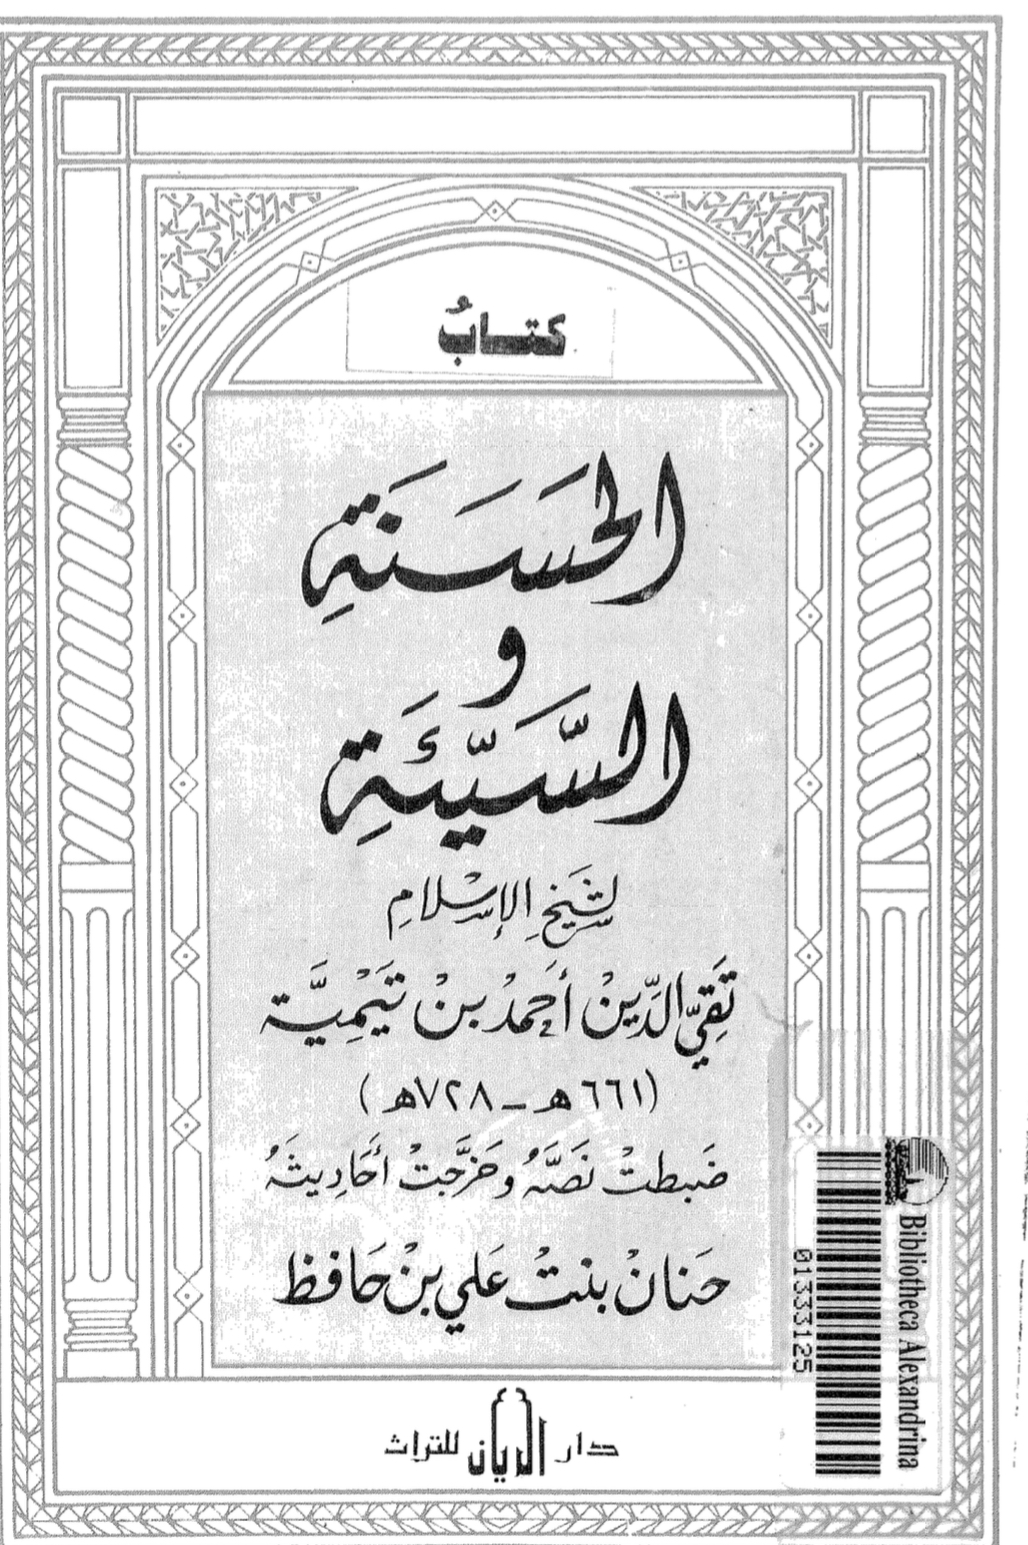 كتابُ
الحَسَنَةِ
و
السَّيِّئَةِ
لشَيْخِ الإِسْلامِ
تَقِيّ الدِّينْ أَحَمدْ بنْ تَيْمِيَّة
(٦٦١هـ - ٧٢٨هـ)
ضَبطتْ نَصَّهُ وخرَّجتْ أحَاديثَهُ
حَنانْ بنتْ عَلي بنْ حَافظ
دار الريان للتراث
Bibliotheca Alexandrina
01333125